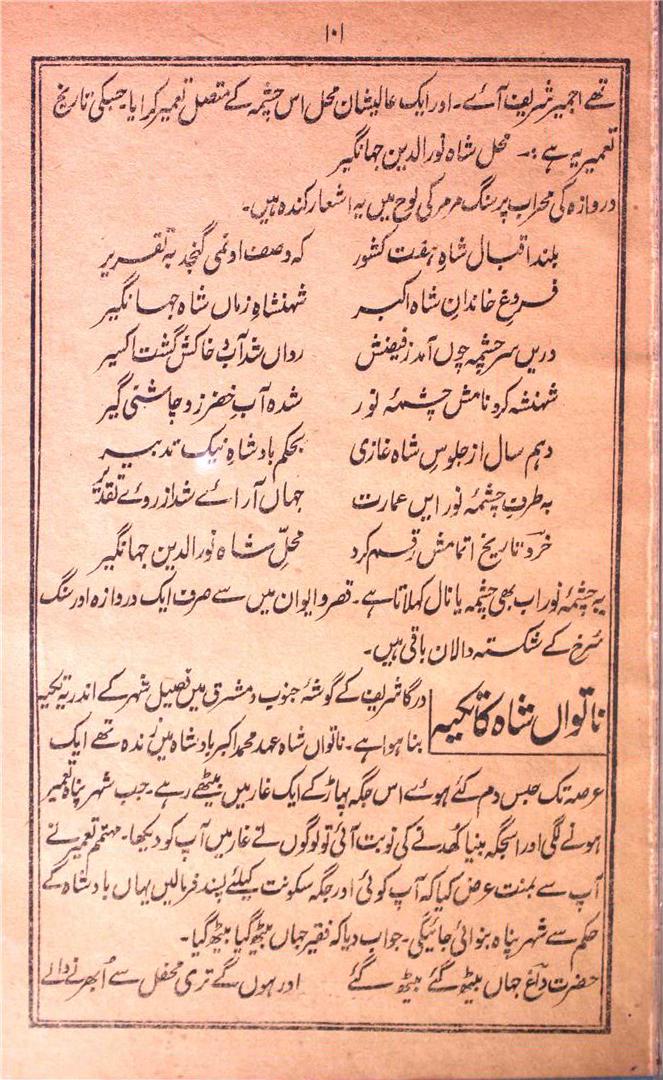 ۱۰۱
تھے اجمیر شریف آئے۔ اور ایک عالیشان محل اس چشمہ کے متصل تعمیر کرایا جسکی تاریخ
تعمیر یہ ہے :۔ محل شاہ نورالدین جہانگیر
دروازہ کی محراب پر سنگ مرمر کی لوح میں یہ اشعار کندہ ہیں۔
بلند اقبال شاہِ ہفت کشور کہ وصف او نمی گنجد بہ تقریر
فروغِ خاندانِ شاہ اکبر شہنشاہِ زماں شاہ جہانگیر
دریں سر چشمہ چوں آمد ز فیضش رواں شد آب و خاکش گشت اکسیر
شہنشہ کرد نامش چشمۂ نور شدہ آبِ خضر زو چاشنی گیر
دہم سال از جلوسِ شاہ غازی بحکم بادشاہِ نیک تدبیر
بہ طرفِ چشمۂ نور ایں عمارت جہاں آرائے شد از روئے تقدیر
خرد تاریخ اتمامش رقم کرد محلِّ شاہ نورالدین جہانگیر
یہ چشمۂ نور اب بھی چشمہ یا نال کہلاتا ہے۔ قصر و ایوان میں سے صرف ایک دروازہ اور سنگ
سُرخ کے شکستہ دالان باقی ہیں۔
ناتواں شاہ کا تکیہ
درگاہ شریف کے گوشۂ جنوب و مشرق میں فصیل شہر کے اندر یہ تکیہ
بنا ہوا ہے۔ ناتواں شاہ عہد محمد اکبر بادشاہ میں زندہ تھے ایک
عرصہ تک حبس دم کئے ہوئے اس جگہ پہاڑ کے ایک غار میں بیٹھے رہے۔ جب شہر پناہ تعمیر
ہونے لگی اور اسجگہ بنیا کُھدنے کی نوبت آئی تو لوگوں نے غار میں آپ کو دیکھا۔ مہتمم تعمیر نے
آپ سے بمنت عرض کیا کہ آپ کوئی اور جگہ سکونت کیلئے پسند فرمالیں یہاں بادشاہ کے
حکم سے شہر پناہ بنوائی جائیگی۔ جواب دیا کہ فقیر جہاں بیٹھ گیا بیٹھ گیا۔
حضرت داغ جہاں بیٹھ گئے بیٹھ گئے اور ہوں گے تری محفل سے اُبھرنے والے